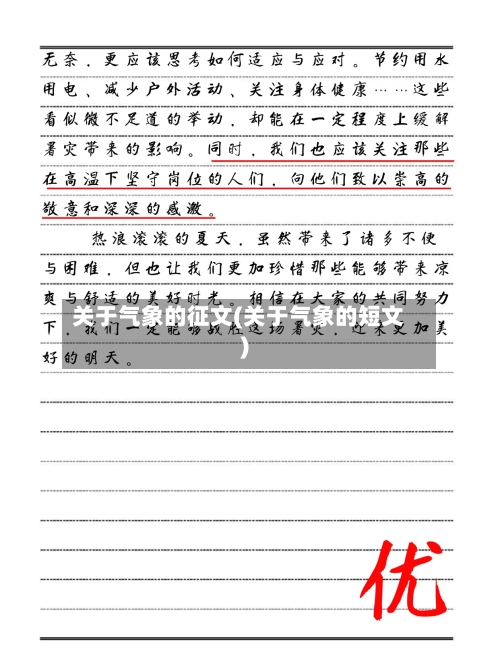 无奈，更应该思考如何适应与应对。节约用水
用电、减少户外活动、关注身体健康……这些
看似微不足道的举动，却能在一定程度上缓解
暑灾带来的影响。同时，我们也应该关注那些
在高温下坚守岗位的人们，向他们致以崇高的
敬意和深深的感激。
热浪滚滚的夏天，虽然带来了诸多不便
与困难，但也让我们更加珍惜那些能够带来凉
爽与舒适的美好时光。相信在大家的共同努力
下，我们一定能够战胜这场暑灾，迎来更加美
好的明天。
关于气象的征文(关于气象的短文
)
优